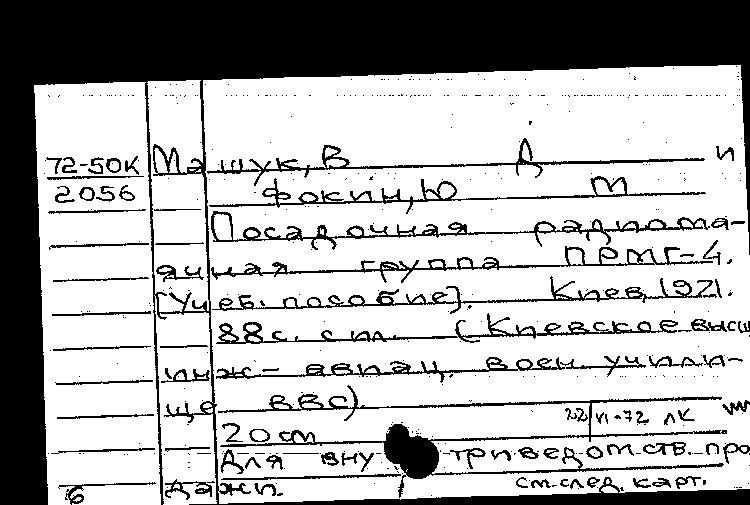 72-50К Мащук, В Д и
2056 Фокин, Ю М
Посадочная радиома-
ячная группа ПРМГ-4.
[Учеб. пособие]. Киев, 1921.
88с. с ил. (Киевское высш
инж- авиац. воен. учили-
ще ВВС).
22/VI-72 ЛК
20 см
Для вну триведомств. про
дажи. см. след. карт.
6